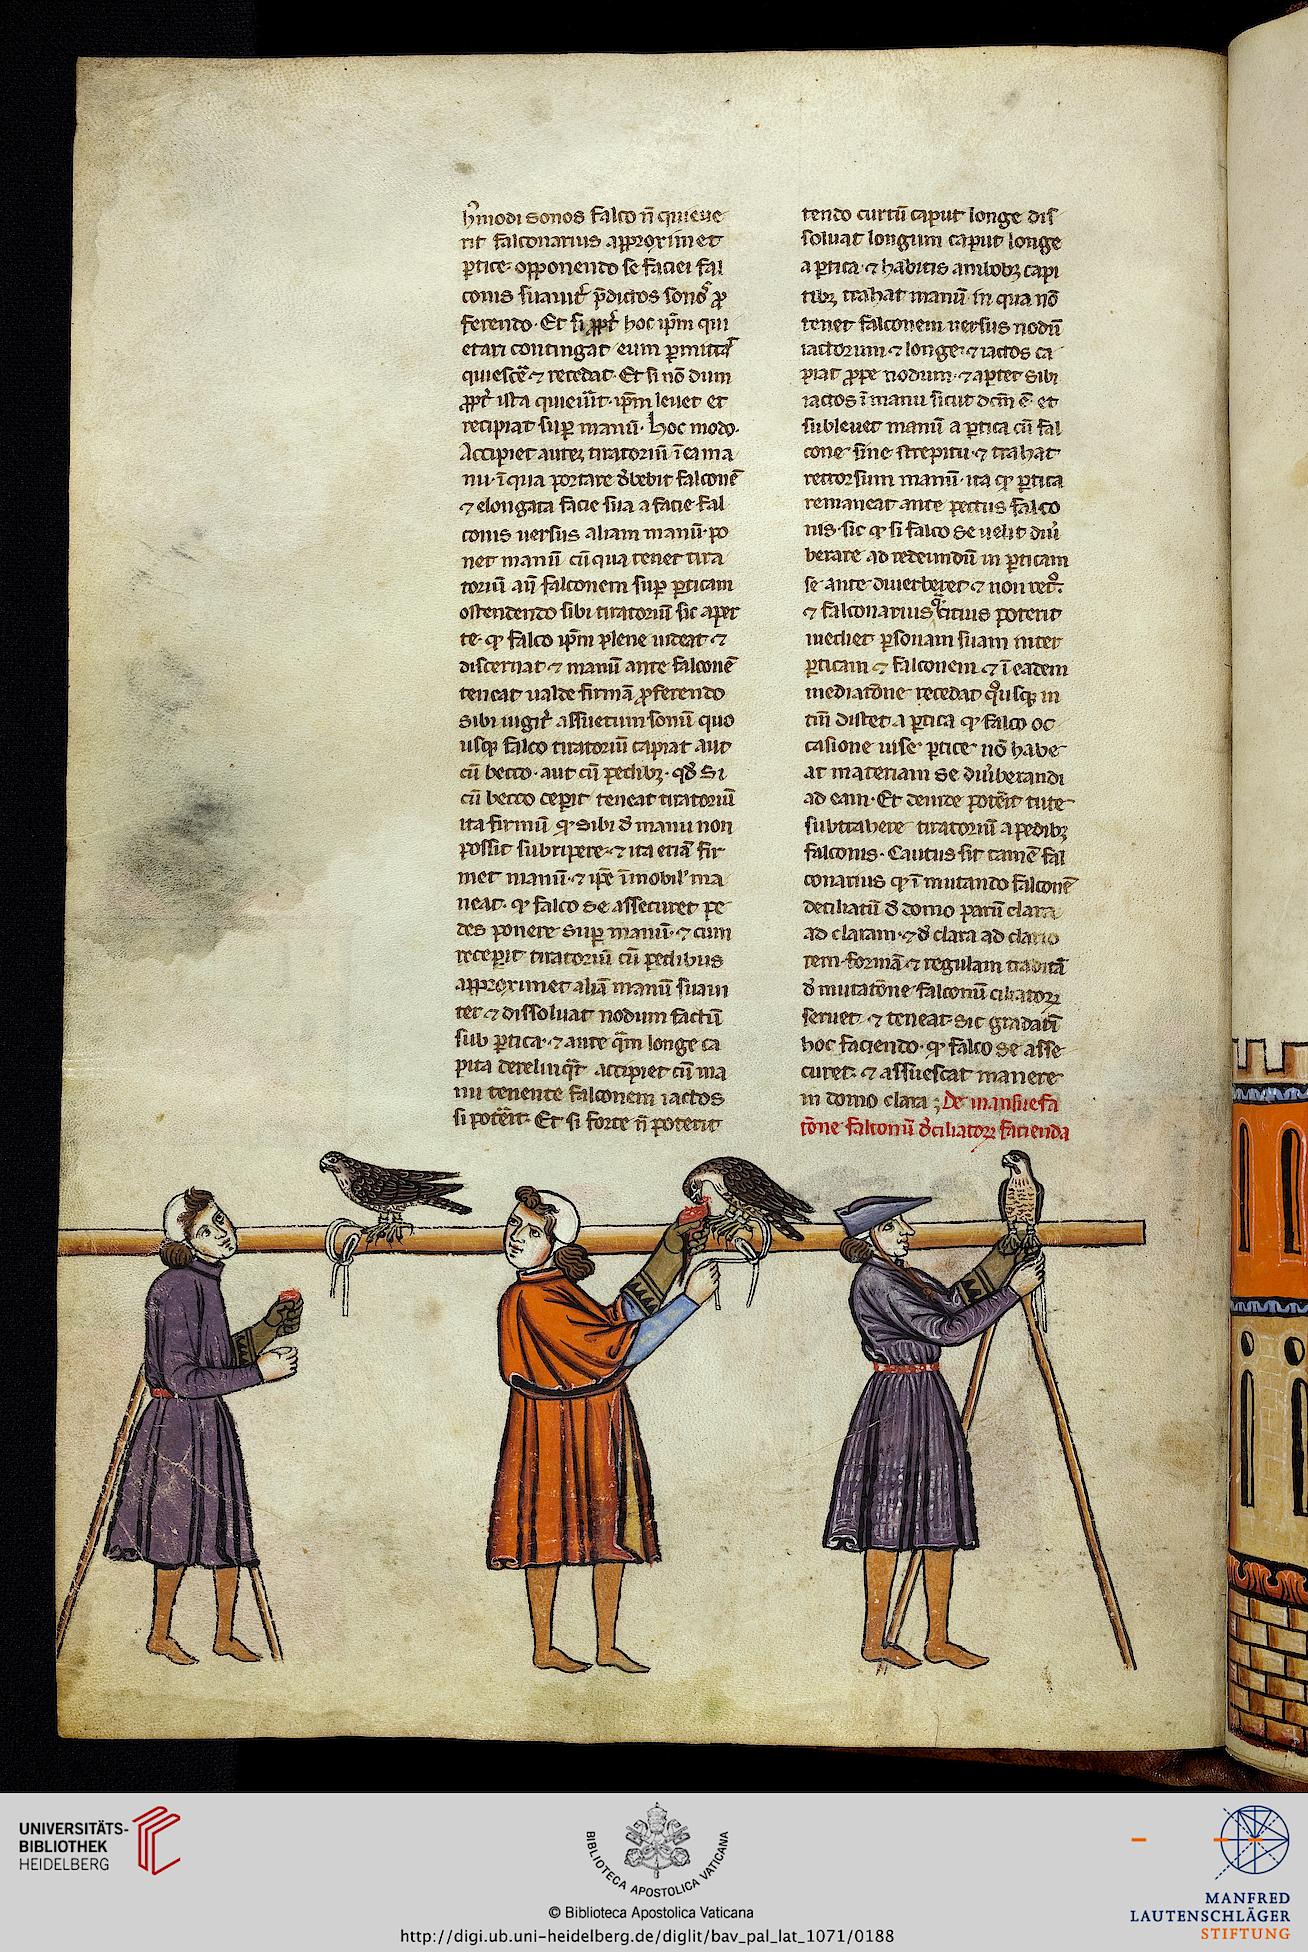 hͥmodi sonos falco n̄ quieue
rit falconarius approximet
ꝑtice opponendo se faciei fal
conis suauit᷑ p̄dictos sonos ꝓ
ferendo. Et si ꝓpt᷑ hoc ip̄m qui
etari contingat eum ꝑmittat
quiesce᷑ ⁊ recedat. Et si nō dum
ꝓpt᷑ ista quieuit ip̄m leuet et
recipiat sup manū. hoc modo.
Accipiet autē tiratoriū ī ea ma
nu ī qua portare debebit falconē
⁊ elongata facie sua a facie fal
conis uersus aliam manū po
net manū cū qua tenet tira
toriū an̄ falconem sup ꝑticam
ostendendo sibi tiratoriū sic aper
te. ꝙ falco ip̄m plene uideat ⁊
discernat ⁊ manū ante falconē
teneat ualde firmā ꝓferendo
sibi iugit᷑ assuetum sonū quo
usqꝫ falco tiratoriū capiat aut
cū becco. aut cū pedibꝫ. qd̄ si
cū becco ceperit teneat tiratoriū
ita firmū ꝙ sibi d̄ manu non
possit subripere. ⁊ ita etiā fir
met manū. ⁊ ip̄e īmobil᷑ ma
neat. ꝙ falco se assecuret pe
des ponere sup manū. ⁊ cum
receperit tiratoriū cū pedibus
approximet aliā manū suam
ter ⁊ dissoluat nodum factū
sub ꝑtica. ⁊ ante qm̄ longe ca
pita derelinq̄t accipiet cū ma
nu tenente falconem iactos
si potēit. Et si forte n̄ poterit
tendo curtū caput longe dis
soluat longum caput longe
a ꝑtica. ⁊ habitis ambobꝫ capi
tibꝫ trahat manū in qua nō
tenet falconem uersus nodū
iactorum ⁊ longe. ⁊ iactos ca
piat ꝓpe nodum. ⁊ aptet sibi
iactos ī manu sicut dc̄m ē. et
subleuet manū a ꝑtica cū fal
cone sine strepitu. ⁊ trahat
retrorsum manū. ita ꝙ ꝑtica
remaneat ante pectus falco
nis. sic ꝙ si falco se uelit diu᷑
berare ad redeundū in ꝑticam
se ante diuerberet ⁊ non ret᷑.
⁊ falconarius q̄ citius poterit
mediet ꝑsonam suam inter
ꝑticam ⁊ falconem. ⁊ ī eadem
mediatōne recedat qͦusqꝫ in
tm̄ distet a ꝑtica ꝙ falco oc
casione uise ꝑtice nō habe
at materiam se diu᷑berandi
ad eam. Et deinde potēit tute
subtrahere tiratoriū a pedibꝫ
falconis. Cautus sit tamē fal
conarius ꝙ ī mutando falconē
deciliatū d̄ domo parū clara
ad claram. ⁊ d̄ clara ad clario
rem. formā ⁊ regulam traditā
d̄ mutatōne falconū ciliatoꝝ
seruet. ⁊ teneat. sic gradatī
hoc faciendo. ꝙ falco se asse
curet. ⁊ assuescat manere
in domo clara ; De mansuefa
tōne falconū deciliatoꝝ facienda
UNIVERSITÄTS-
BIBLIOTHEK
HEIDELBERG
BIBLIOTECA APOSTOLICA VATICANA
© Biblioteca Apostolica Vaticana
http://digi.ub.uni-heidelberg.de/diglit/bav_pal_lat_1071/0188
MANFRED
LAUTENSCHLÄGER
STIFTUNG